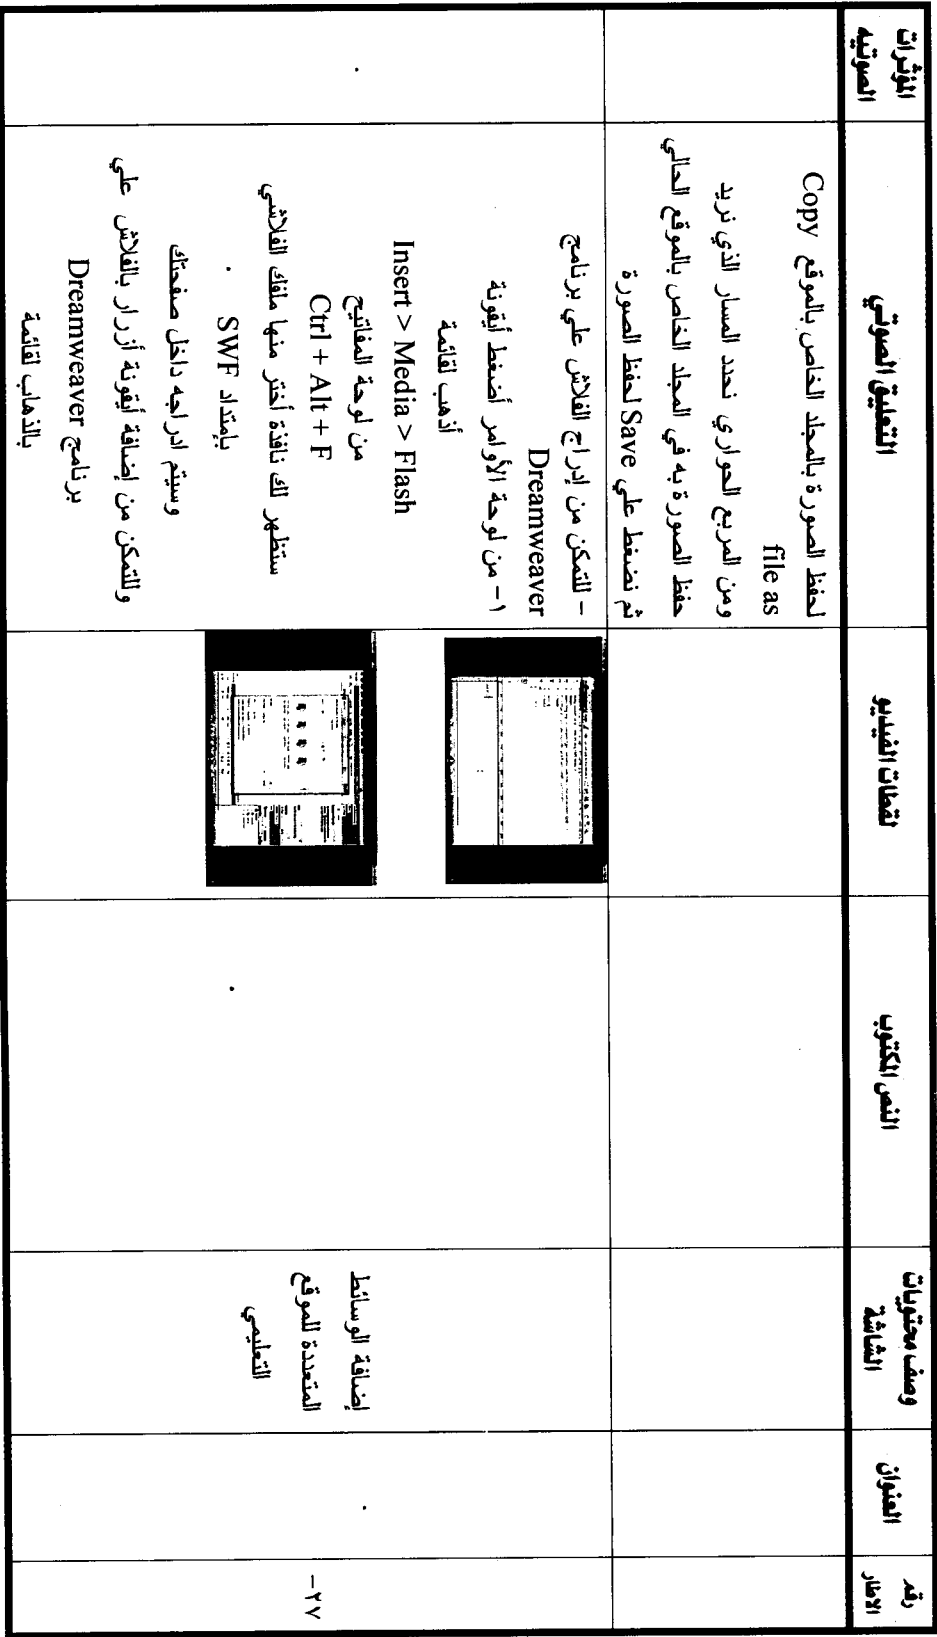 رقم
الاطار
العنوان
وصف محتويات
الشاشة
النص المكتوب
لقطات الفيديو
التعليق الصوتي
المؤثرات
الصوتيه
لحفظ الصورة بالمجلد الخاص بالموقع Copy
file as
ومن المربع الحواري نحدد المسار الذي نريد
حفظ الصورة به في المجلد الخاص بالموقع الحالي
ثم نضغط علي Save لحفظ الصورة
٢٧-
إضافة الوسائط
المتعددة للموقع
التعليمي
- للتمكن من إدراج الفلاش علي برنامج
Dreamweaver
١- من لوحة الأوامر أضغط أيقونة
أذهب لقائمة
Insert > Media > Flash
من لوحة المفاتيح
Ctrl + Alt + F
ستظهر لك نافذة أختر منها ملفك الفلاشي
بإمتداد SWF .
وسيتم ادراجه داخل صفحتك
وللتمكن من إضافة أيقونة أزرار بالفلاش علي
برنامج Dreamweaver
بالذهاب لقائمة